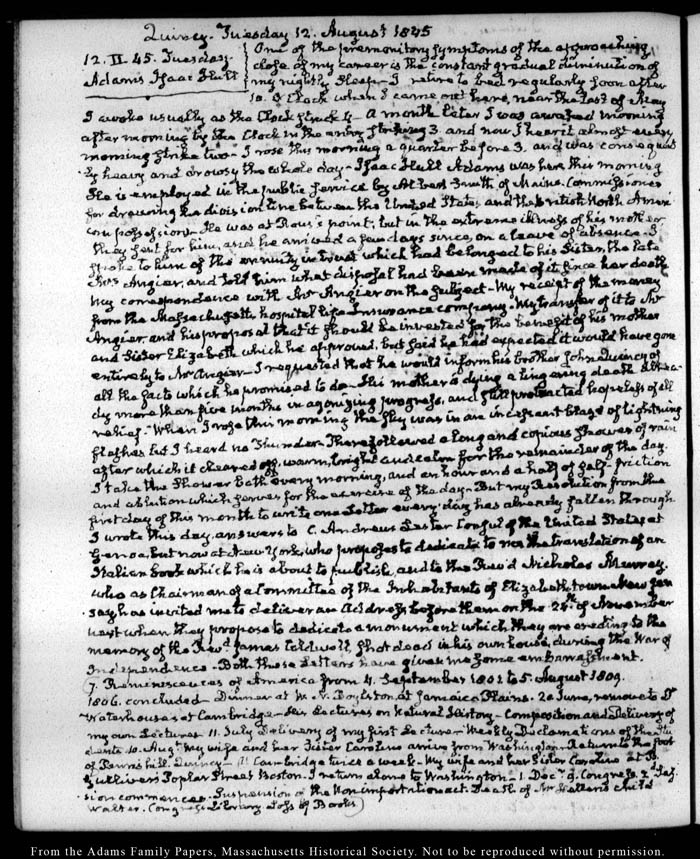 Quincy. Tuesday 12. August 1845
12. II. 45. Tuesday.
Adams Isaac Hull
One of the premonitory symptoms of the approaching
close of my career is the constant gradual diminution of
my nightly sleep. I retire to bed regularly soon after
10. O'Clock when I came out here, near the last of May
I awoke usually as the Clock struck 4 - A month later I was awaked morning
after morning by the Clock in the entry striking 3. and now I hear it almost every
morning strike two - I rose this morning a quarter before 3. and was consequent
ly heavy and drowsy the whole day - Isaac Hull Adams was here this morning
He is employed in the public service by Albert Smith of Maine. Commissioner
for drawing the division line between the United States, and the British North Ameri
can possessions. He was at Rouse's point, but in the extreme illness of his mother
they sent for him, and he arrived a few days since, on a leave of absence. I
spoke to him of the annuity in trust which had belonged to his Sister, the late
Mrs Angier, and told him what disposal had been made of it since her death
My correspondence with Mr Angier on the subject - My receipt of the money
from the Massachusetts hospital life Insurance company. My transfer of it to Mr
Angier and his proposal that it should be invested for the benefit of his mother
and Sister Elizabeth which he approved, but said he had expected it would have gone
entirely to Mr Angier - I requested that he would inform his brother John Quincy of
all the facts which he promised to do. His mother is dying a lingering death alrea-
dy more than five months in agonizing progress, and still protracted hopeless of all
relief. When I rose this morning the sky was in an incessant blaze of lightning
flashes but I heard no Thunder. There followed a long and copious shower of rain
after which it cleared off, warm, bright and calm for the remainder of the day.
I take the Shower bath every morning, and an hour and a half of self-friction
and ablution which serves for the exercise of the day - But my Resolution from the
first day of this month to write one Letter every day has already fallen through
I wrote this day, answers to C. Andrews Lester Consul of the United States at
Genoa, but now at New York, who proposes to dedicate to me the translation of an
Italian book which he is about to publish, and to the Revd Nicholas Murray.
who as Chairman of a Committee of the Inhabitants of Elizabethtown. New Jer
sey has invited me to deliver an Address before them on the 24th of November
next when they propose to dedicate a monument which they are erecting to the
memory of the Revd James Caldwell shot dead in his own house, during the War of
Independence. Both these Letters have given me some embarrassment.
(7. Reminiscences of America from 4. September 1801 to 5. August 1809.
1806. concluded - Dinner at W. N. Boylston at Jamaica Plains. 20 June, remove to Dr
Waterhouse's at Cambridge - His Lectures on Natural History - Composition and Delivery of
my own Lectures 11. July Delivery of my first Lecture - Weekly Declamations of the Stu
dents. 10. Augt My wife and her Sister Caroline arrive from Washington. Return to the foot
of Penns hill. Quincy - at Cambridge twice a week - My wife and her Sister Caroline at B.
Gulliver's Poplar Street Boston. I return alone to Washington - 1. Decr 9. Congress. 2d Ses
sion commences. Suspension of the Non importation act. Death of Mr Hellen's child
Walter. Congress Library. Loss of Books)
From the Adams Family Papers, Massachusetts Historical Society. Not to be reproduced without permission.